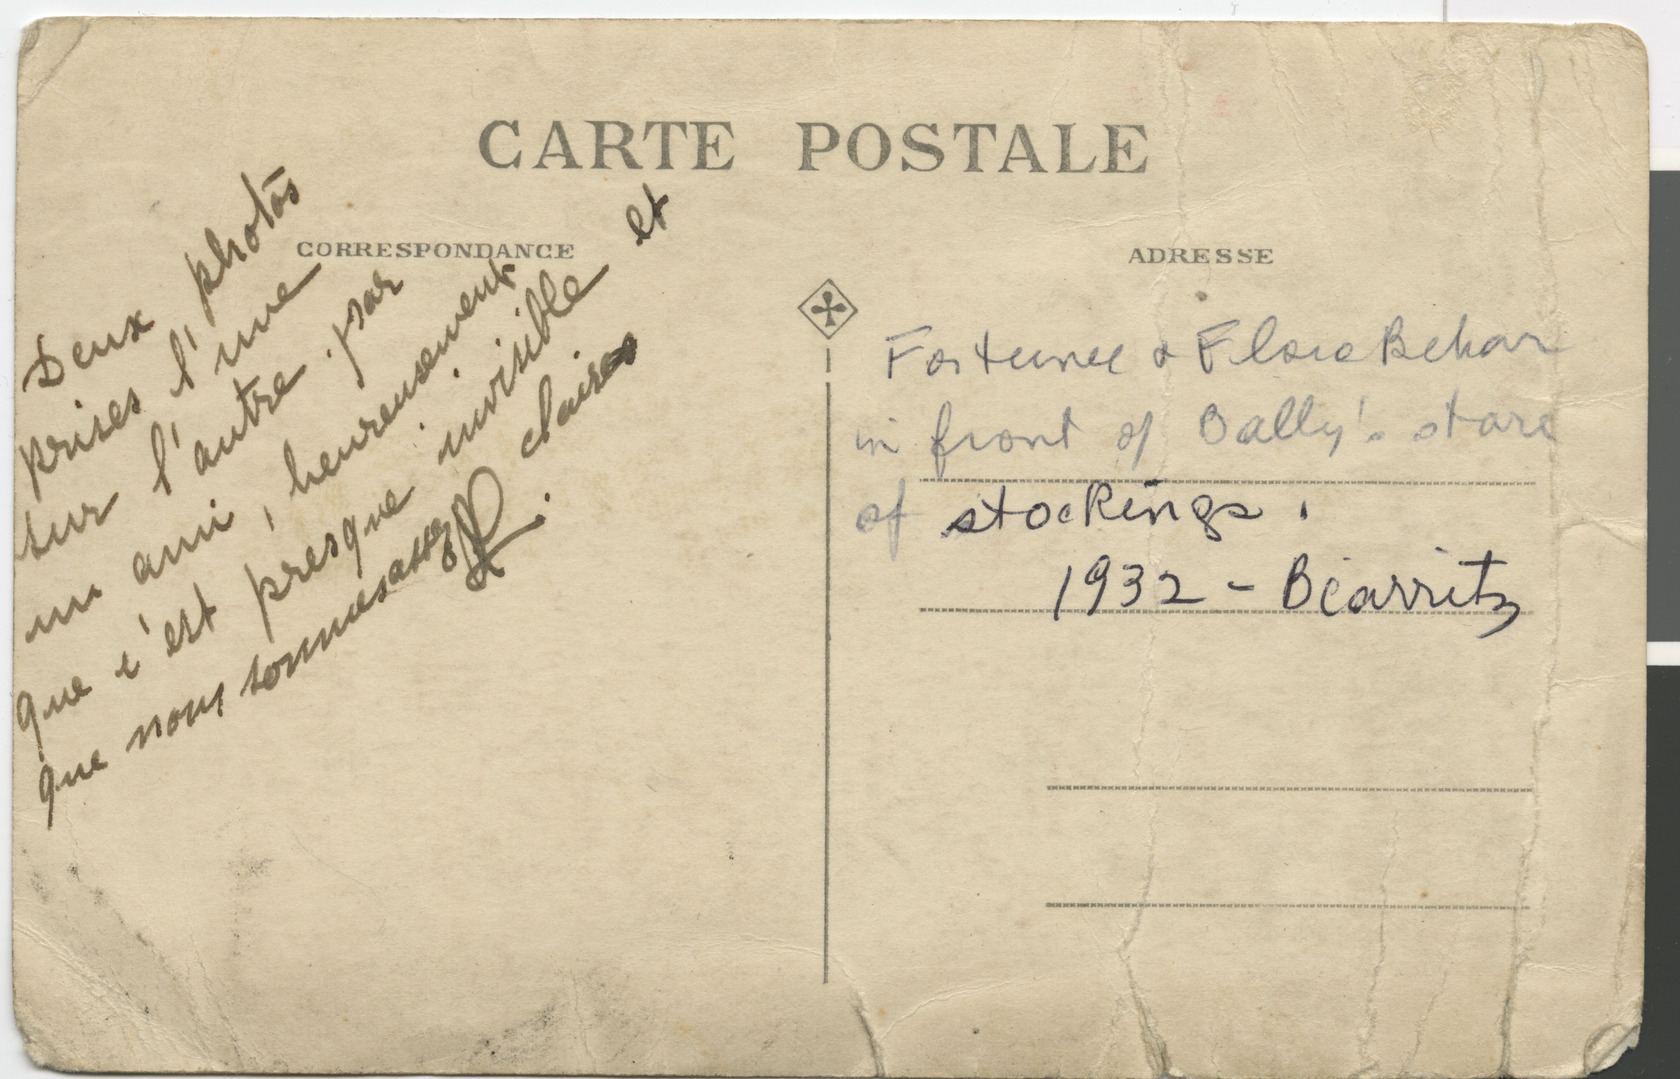 CARTE POSTALE
CORRESPONDANCE
Deux photos
prises l'une
sur l'autre par
un ami, heureusement
que c'est presque invisible et
que nous sommes assez claires.
ADRESSE
Fortunee & Flore Behar
in front of Bally's store
of stockings.
1932 - Biarritz